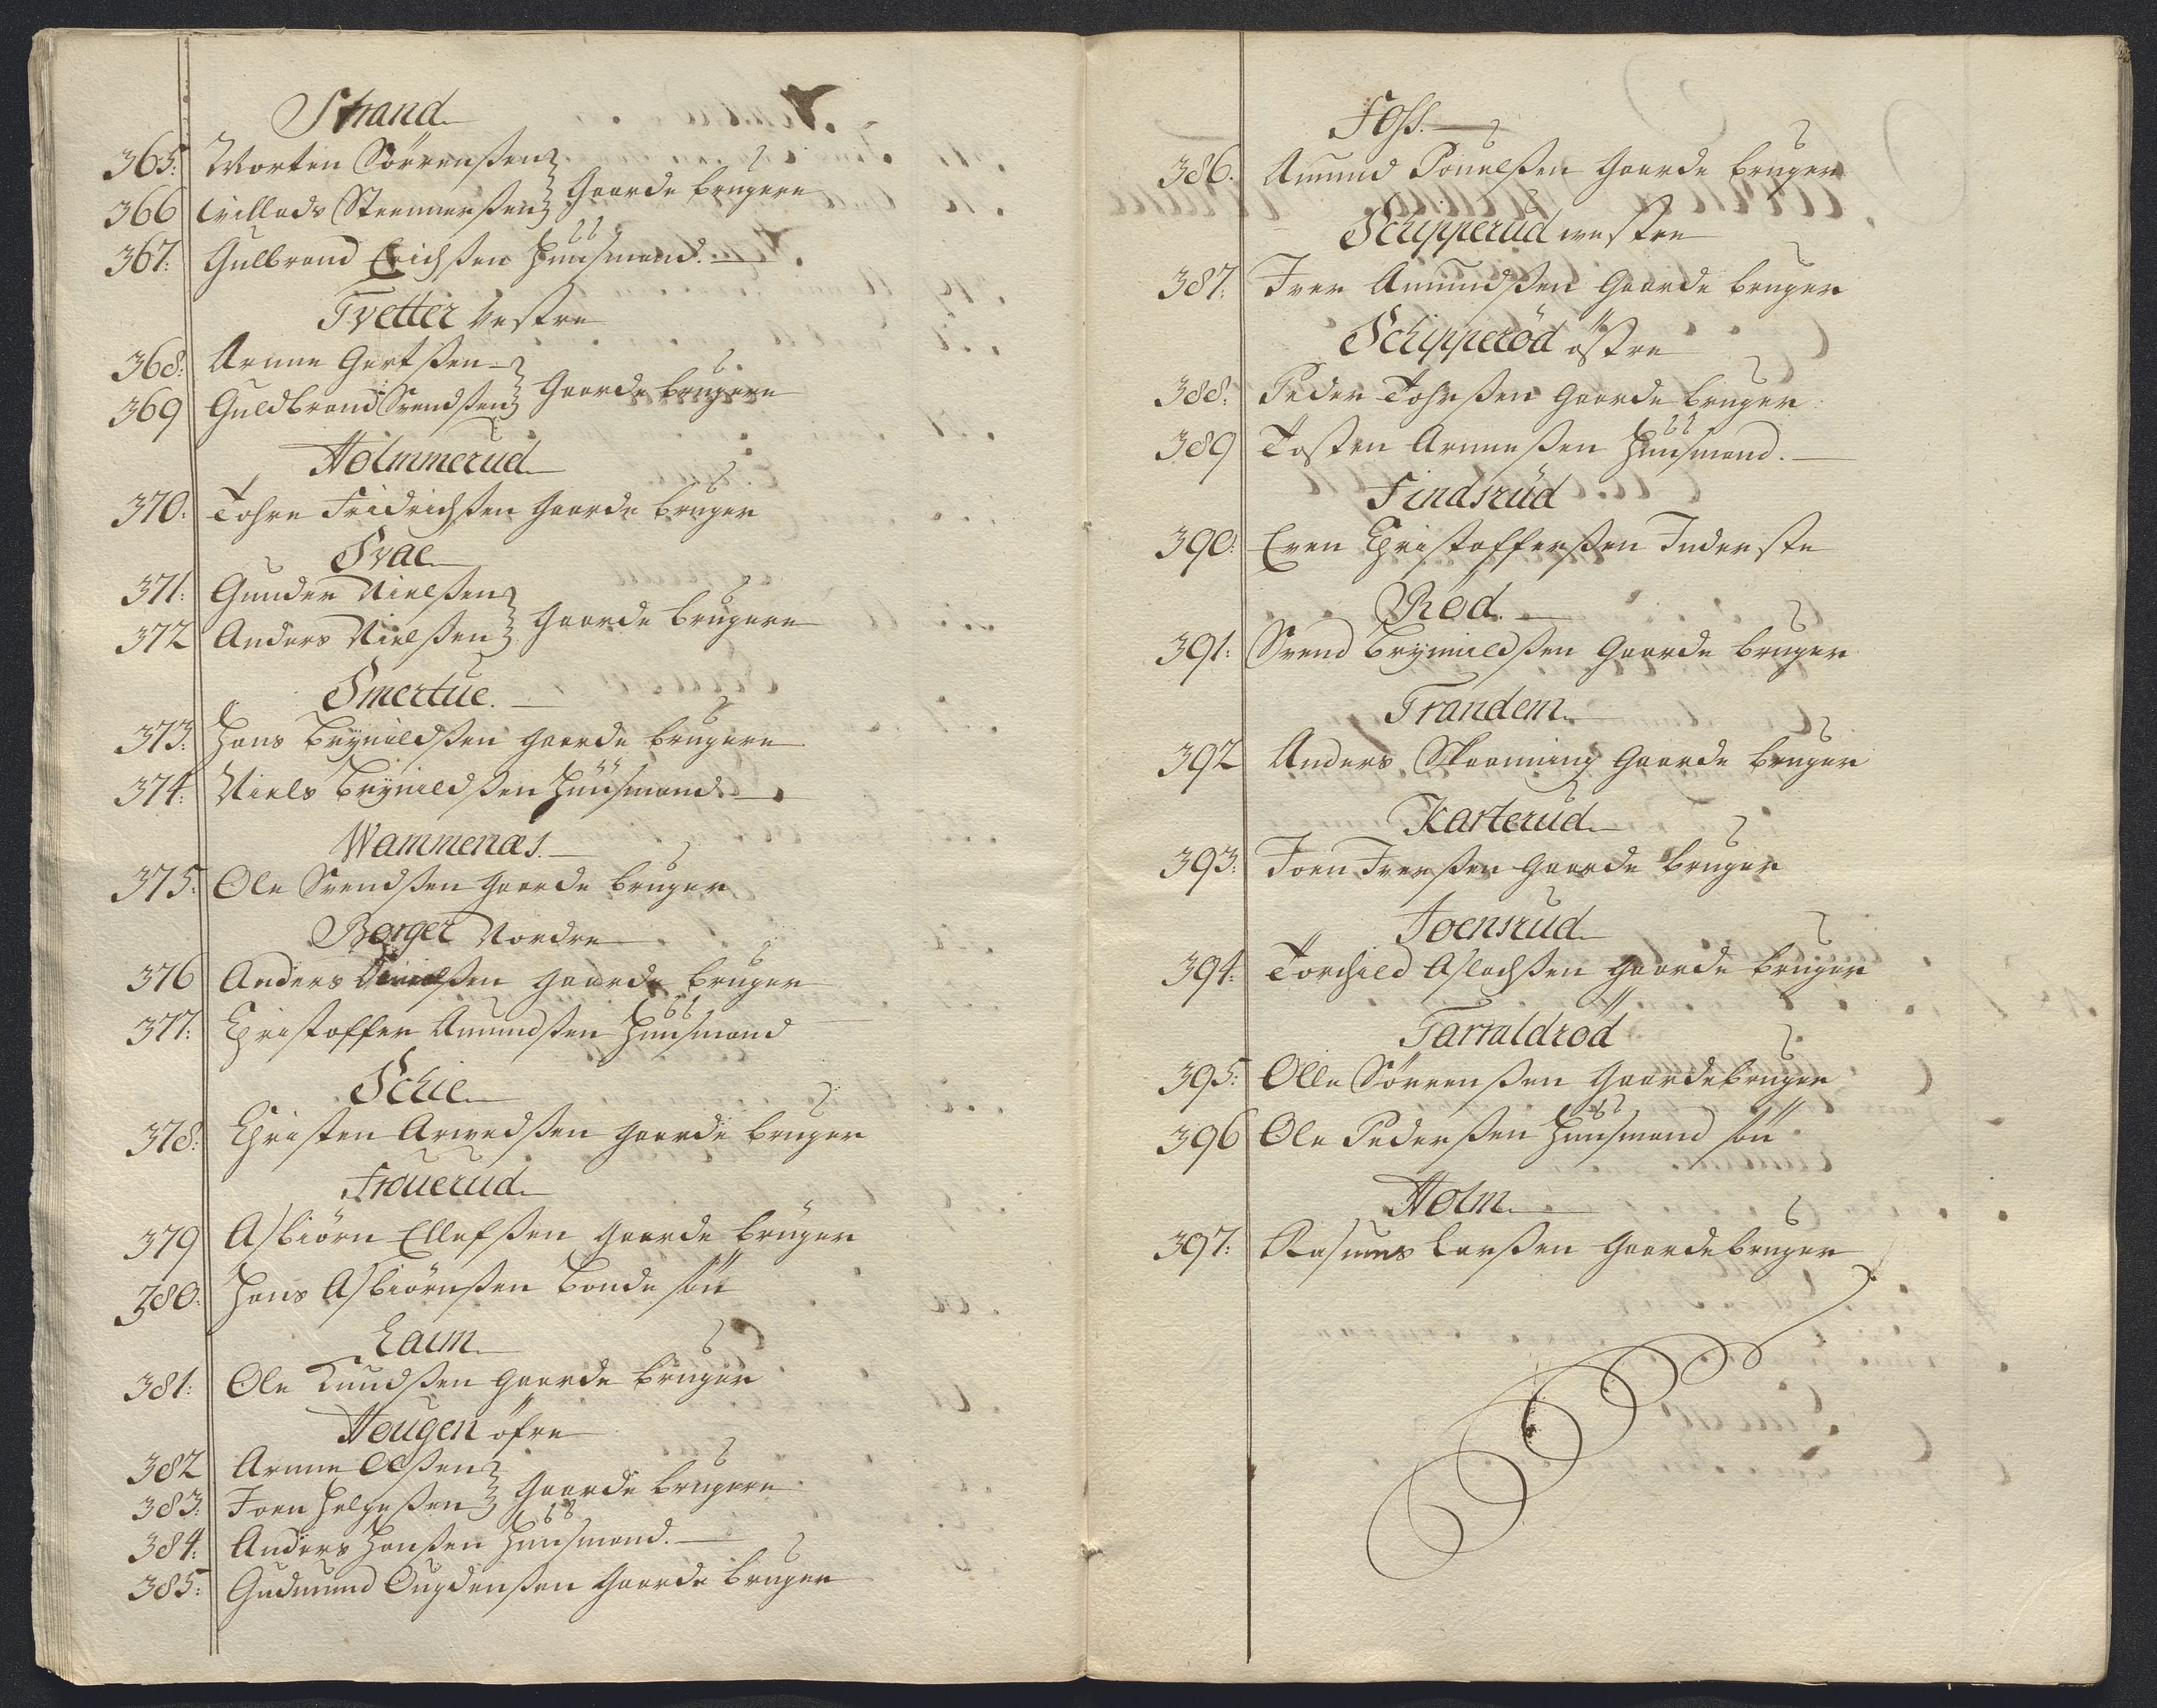 Strand
365: Morten Sörrenßen
366 Villads Stennerßen } Gaarde brugere
367: Gulbrand Erichßen Huusmand.
Tvetter Vestre
368: Arnne Gertßen
369 Guldbrand Svendßen } Gaarde brugere
Holmmerud
370: Tohre Fridrichßen Gaarde bruger
Svae
371: Gunder Nielßen
372 Anders Nielßen } Gaarde brugere
Smertue.
373: Hans Brynildßen Gaarde brugere
374: Niels Brynildßen Huusmand.
Wammenæs.
375: Ole Svendßen Gaarde bruger
Borger Nordre
376 Anders Nielßen Gaarde bruger
377: Christoffer Amundßen Huusmand
Schie
378: Christen Arvedßen Gaarde bruger
Frouerud
379 Asbiörn Ellefßen Gaarde bruger
380: Hans Asbiörnßen Bonde sön
Laim
381: Ole Knudßen Gaarde bruger
Hougen öfre
382 Arnne Olßen
383: Joen Helgeßen } Gaarde brugere
384: Anders Hanßen Huusmand.
385: Gudmund Ougdenßen Gaarde bruger
Foss.
386. Amund Pouelßen Gaarde bruger
Schipperud westre
387: Iver Amundßen Gaarde bruger
Schipperöd östre
388: Peder Tohrßen Gaarde bruger
389 Tosten Arnneßen Huusmand.
Findsrud
390: Even Christofferßen Inderste
Röd.
391: Svend Brynnildßen Gaarde bruger
Trandem
392 Anders Skaanning Gaarde bruger
Karterud
393: Joen Iverßen Gaarde bruger
Joensrud
394: Torchild Aslachßen Gaarde bruger
Tarraldröd
395: Olle Sörrenßen Gaardebruger
396 Ole Pederßen Huusmand sön
Holm
397: Rasmus Larßen Gaardebruger